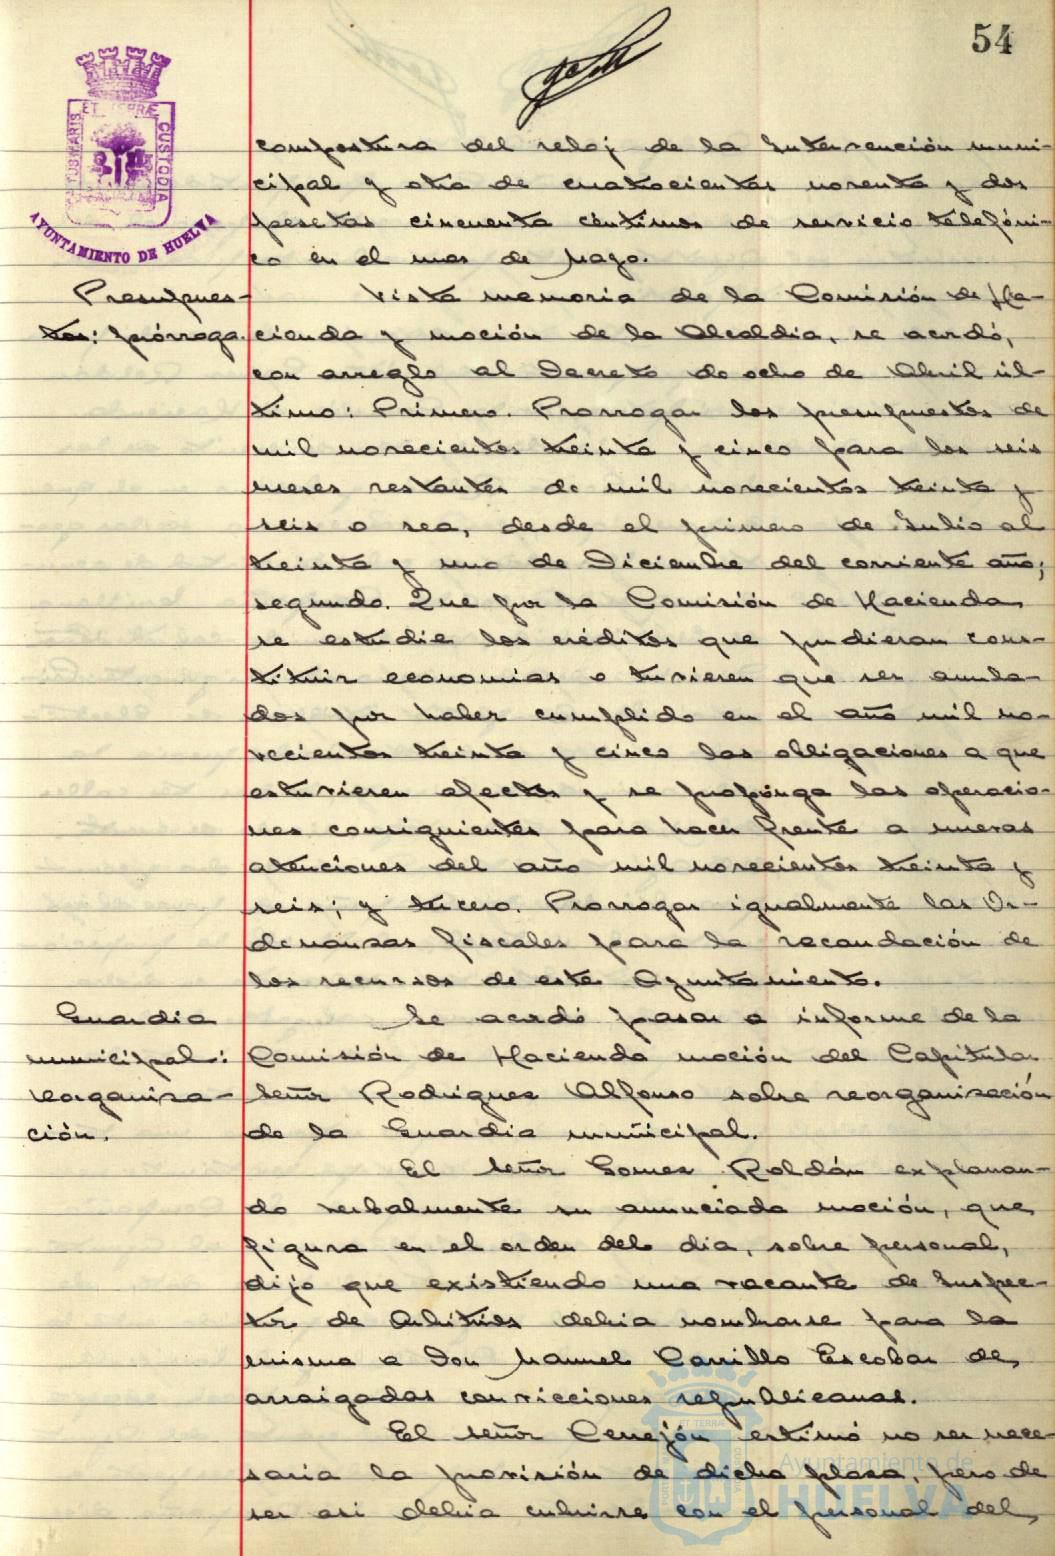 54
PORTUS MARIS ET TERRÆ CUSTODIA
AYUNTAMIENTO DE HUELVA
compostura del reloj de la Intervención muni-
cipal y otra de cuatrocientas noventa y dos
pesetas cincuenta céntimos de servicio telefóni-
co en el mes de Mayo.
Presupues-
tos: prórroga.
Vista memoria de la Comisión de Ha-
cienda y moción de la Alcaldia, se acordó,
con arreglo al Decreto de ocho de Abril úl-
timo: Primero. Prorrogar los presupuestos de
mil novecientos treinta y cinco para los seis
meses restantes de mil novecientos treinta y
seis o sea, desde el primero de Julio al
treinta y uno de Diciembre del corriente año;
segundo. Que por la Comisión de Hacienda
se estudie los créditos que pudieran cons-
tituir economias o tuvieren que ser anula-
dos por haber cumplido en el año mil no-
vecientos treinta y cinco las obligaciones a que
estuvieren afectos y se proponga las operacio-
nes consiguientes para hacer frente a nuevas
atenciones del año mil novecientos treinta y
seis; y tercero. Prorrogar igualmente las Or-
denanzas fiscales para la recaudación de
los recursos de este Ayuntamiento.
Guardia
municipal:
reorganiza-
ción.
Se acordó pasar a informe de la
Comisión de Hacienda moción del Capitular
señor Rodriguez Alfonso sobre reorganización
de la Guardia municipal.
El señor Gomez Roldán explanan-
do verbalmente su anunciada moción, que
figura en el orden del dia, sobre personal,
dijo que existiendo una vacante de Inspec-
tor de Arbitrios debia nombrarse para la
misma a Don Manuel Carrillo Escobar de
arraigadas convicciones republicanas.
El señor Cerrejón estimó no ser nece-
saria la provisión de dicha plaza, pero de
ser asi debia cubrirse con el personal del
Ayuntamiento de
HUELVA